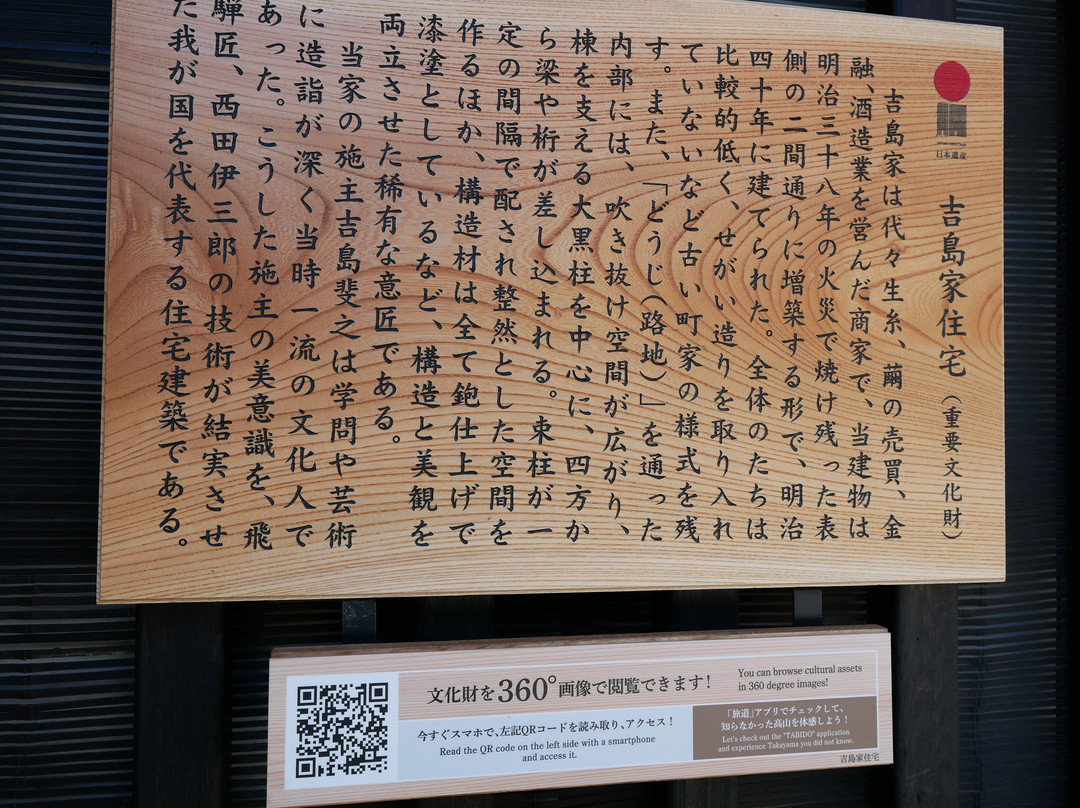 JAPAN HERITAGE
日本遺産
吉島家住宅（重要文化財）
吉島家は代々生糸、繭の売買、金
融、酒造業を営んだ商家で、当建物は
明治三十八年の火災で焼け残った表
側の二間通りに増築する形で、明治
四十年に建てられた。全体のたちは
比較的低く、せがい造りを取り入れ
ていないなど古い町家の様式を残
す。また、「どうじ（路地）」を通った
内部には、吹き抜け空間が広がり、
棟を支える大黒柱を中心に、四方か
ら梁や桁が差し込まれる。束柱が一
定の間隔で配され整然とした空間を
作るほか、構造材は全て鉋仕上げで
漆塗としているなど、構造と美観を
両立させた稀有な意匠である。
当家の施主吉島斐之は学問や芸術
に造詣が深く当時一流の文化人で
あった。こうした施主の美意識を、飛
騨匠、西田伊三郎の技術が結実させ
た我が国を代表する住宅建築である。
文化財を360°画像で閲覧できます！
You can browse cultural assets
in 360 degree images!
今すぐスマホで、左記QRコードを読み取り、アクセス！
Read the QR code on the left side with a smartphone
and access it.
「旅道」アプリでチェックして、
知らなかった高山を体感しよう！
Let's check out the "TABIDO" application
and experience Takayama you did not know.
吉島家住宅